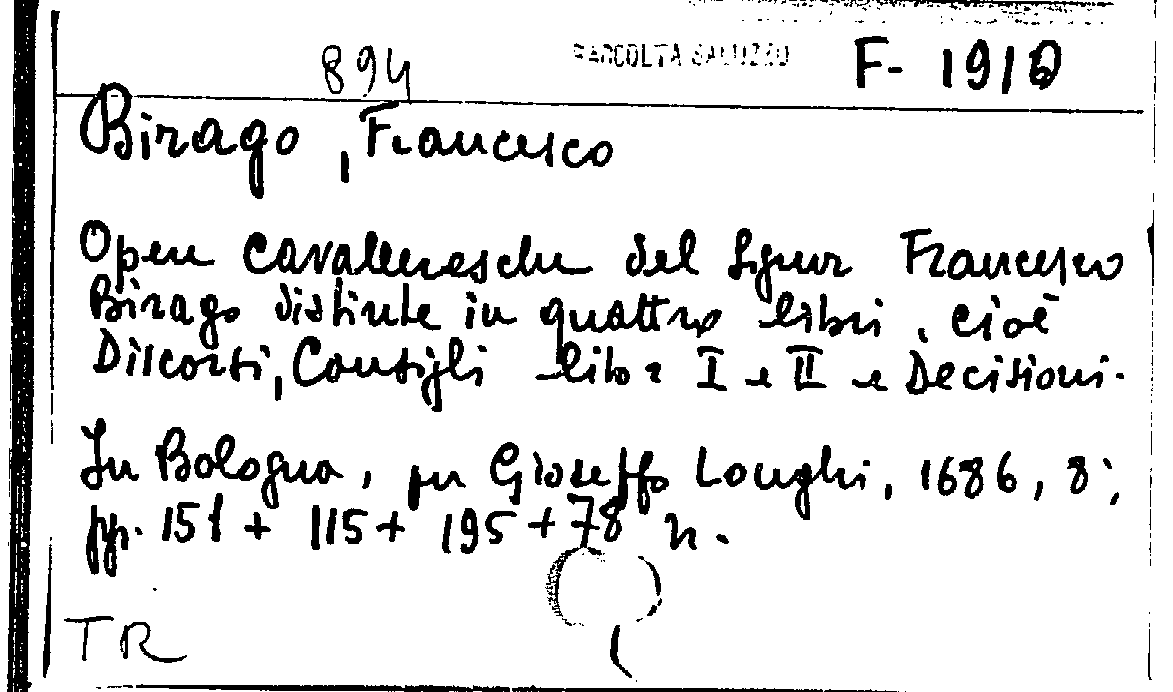 894 RACCOLTA SALUZZO F- 1910
Birago, Francesco
Opere cavalleresche del Signor Francesco
Birago distinte in quattro libri, cioè
Discorsi, Consigli libro I e II e Decisioni.
In Bologna, per Gioseffo Longhi, 1686, 8°,
pp. 151 + 115 + 195 + 78 n.
TR